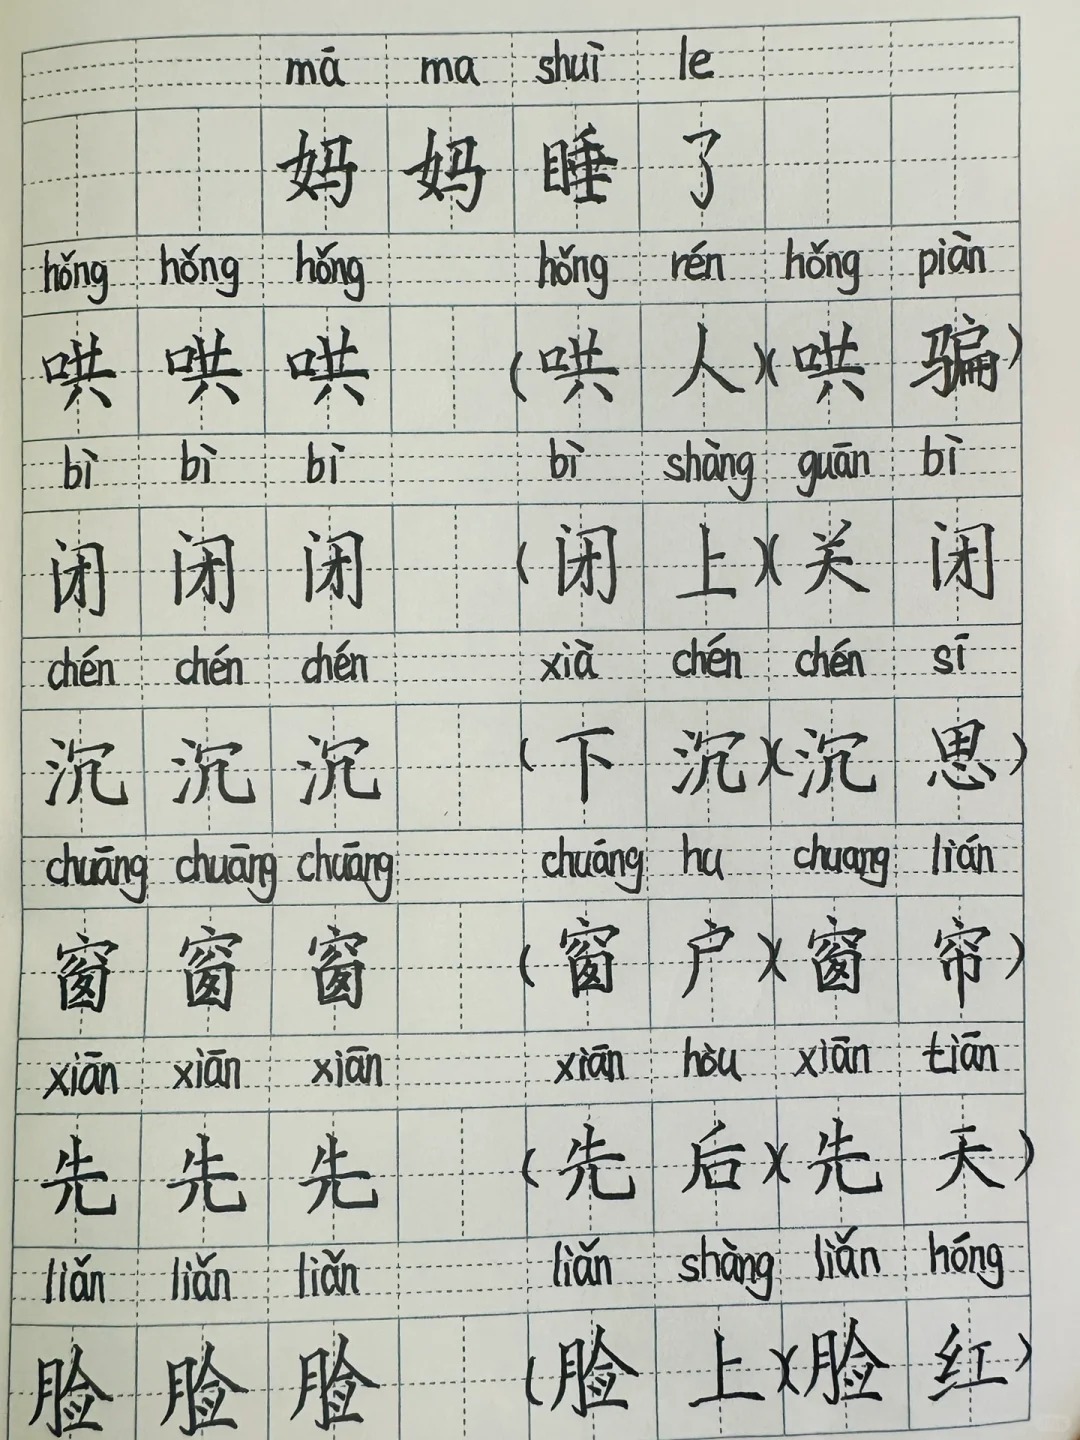 mā ma shuì le
妈妈睡了
hǒng hǒng hǒng hǒng rén hǒng piàn
哄哄哄(哄人)(哄骗)
bì bì bì bì shàng guān bì
闭闭闭(闭上)(关闭
chén chén chén xià chén chén sī
沉沉沉(下沉)(沉思)
chuāng chuāng chuāng chuáng hu chuang lián
窗窗窗(窗户)(窗帘)
xiān xiān xiān xiān hòu xiān tiān
先先先(先后)(先天)
liǎn liǎn liǎn liǎn shàng liǎn hóng
脸脸脸(脸上)(脸红)